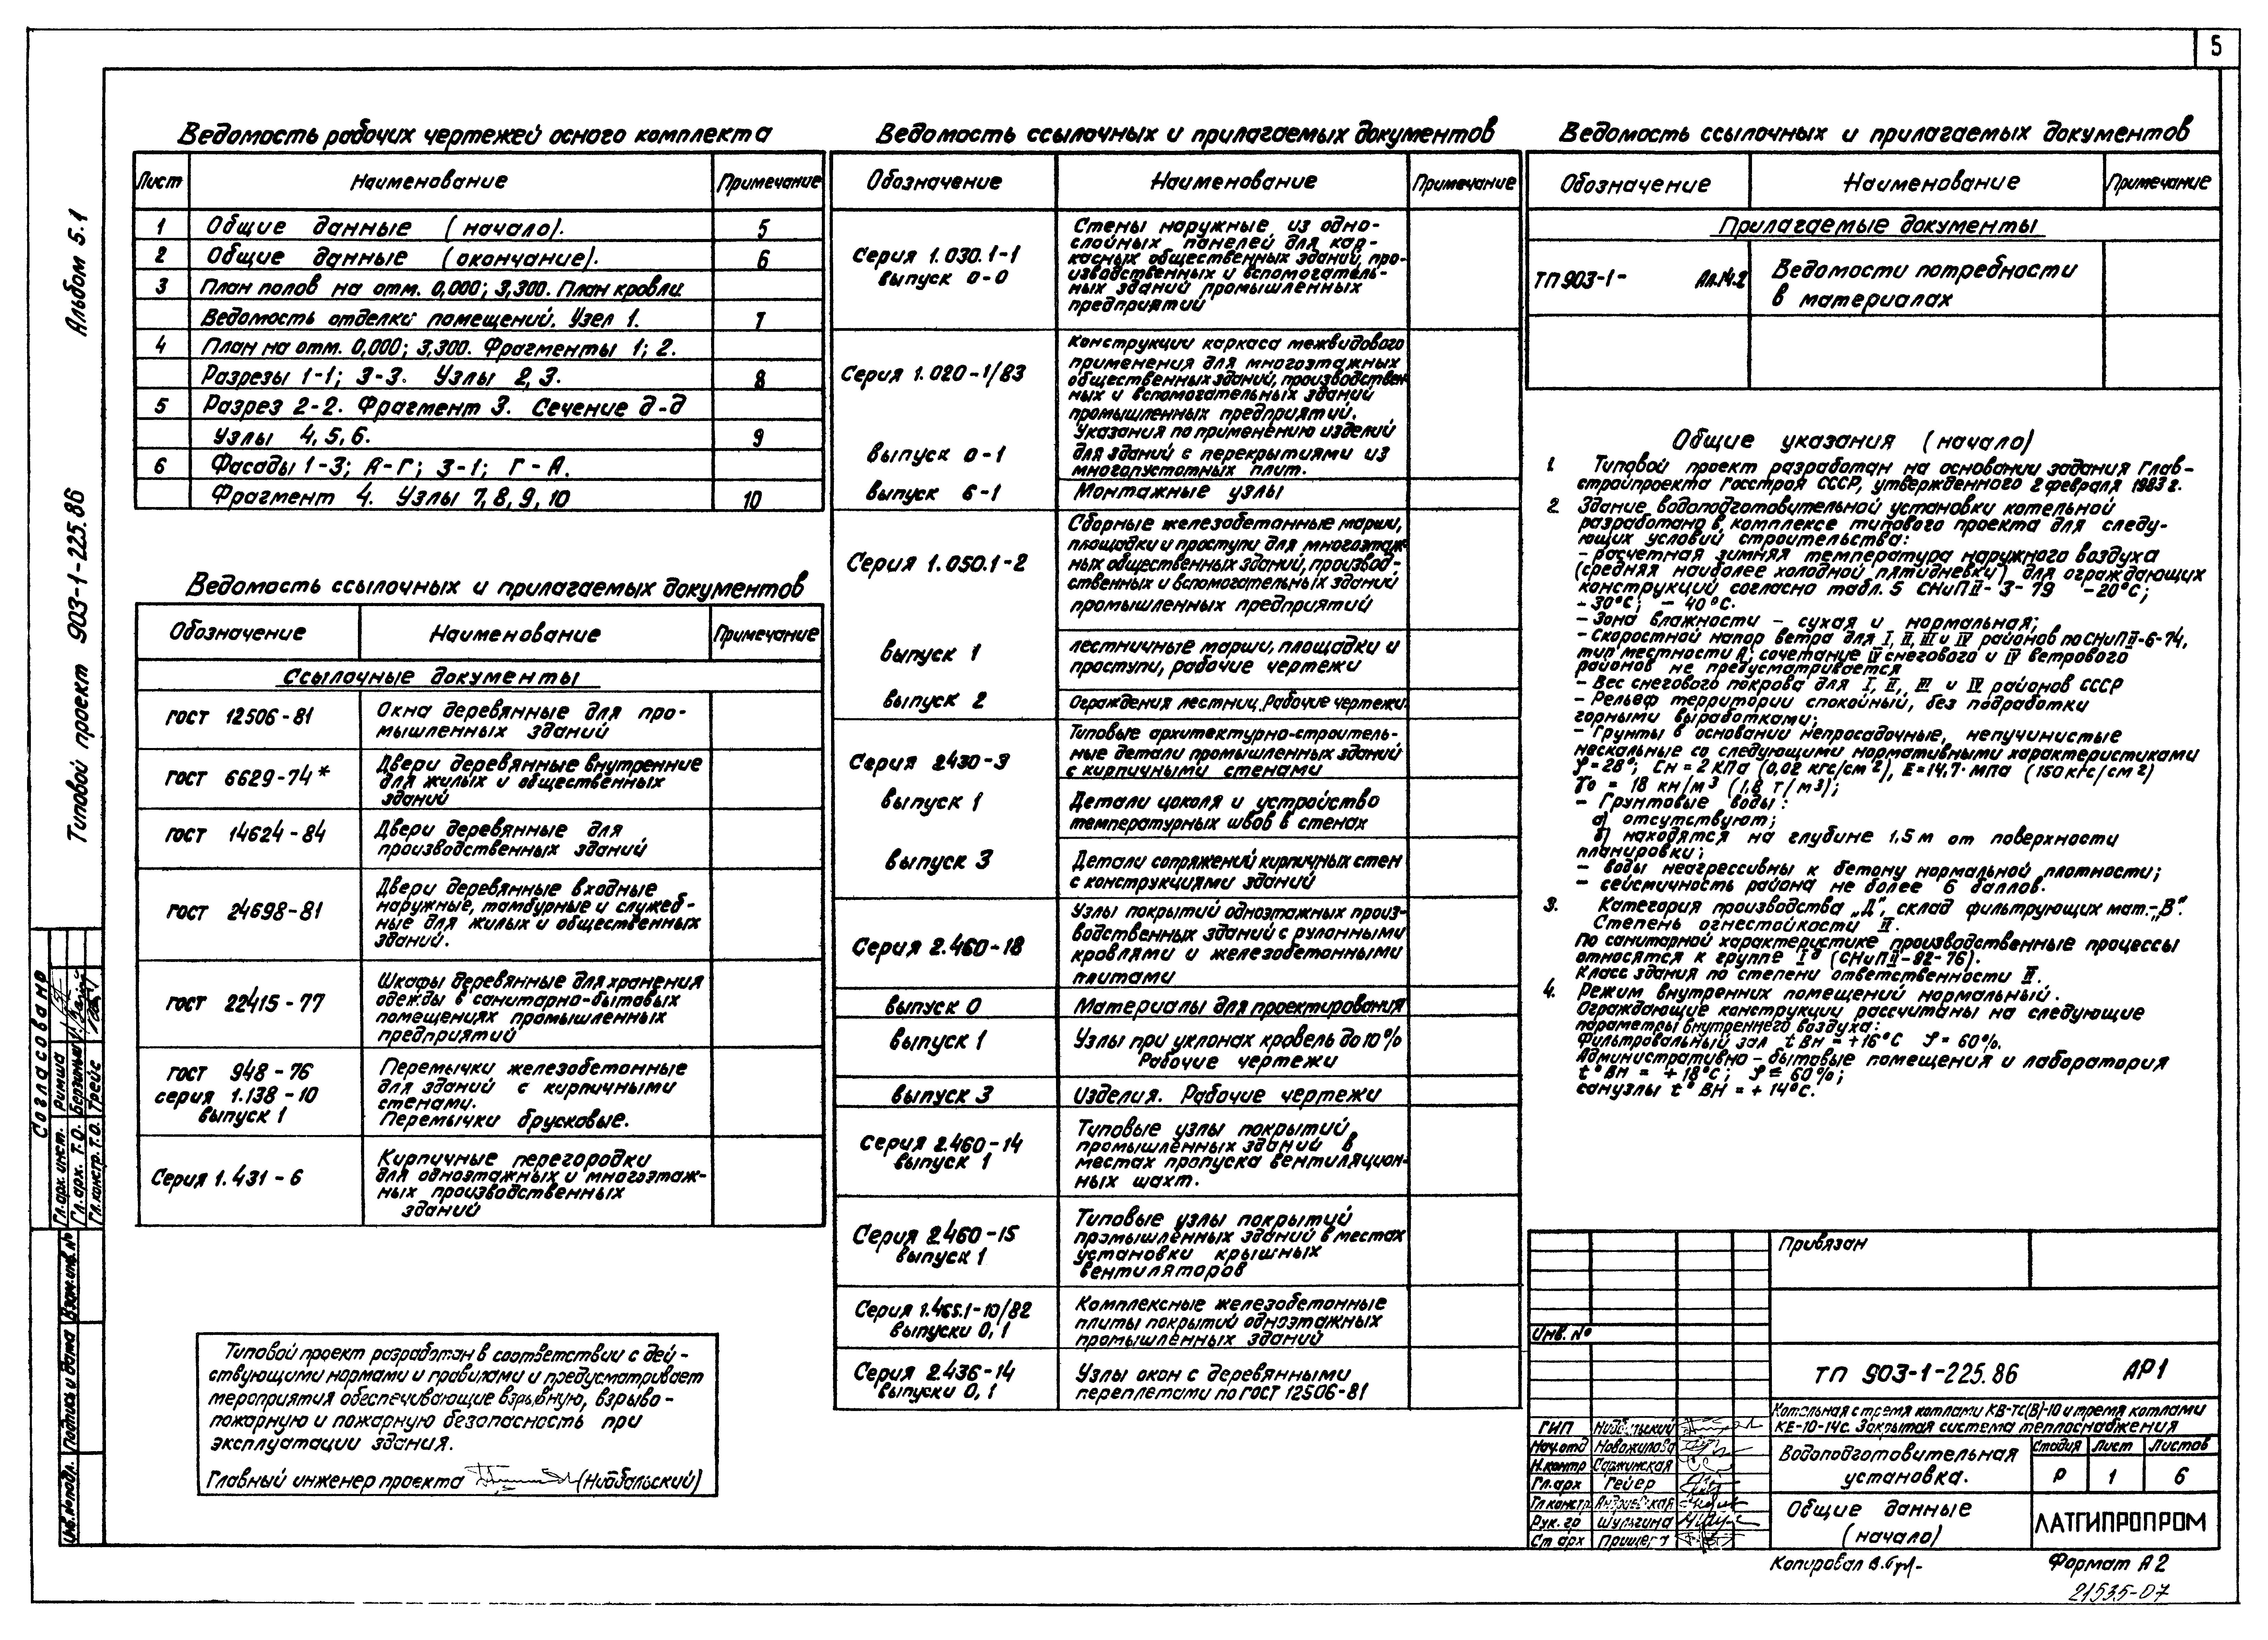 5
Альбом 5.1
Типовой проект 903-1-225.86
Ведомость рабочих чертежей осного комплекта
Лист Наименование Примечание
1 Общие данные (начало). 5
2 Общие данные (окончание). 6
3 План полов на отм. 0,000; 3,300. План кровли.
Ведомость отделки помещений. Узел 1. 7
4 План на отм. 0,000; 3,300. Фрагменты 1; 2.
Разрезы 1-1; 3-3. Узлы 2,3. 8
5 Разрез 2-2. Фрагмент 3. Сечение д-д
Узлы 4,5,6. 9
6 Фасады 1-3; А-Г; 3-1; Г-А.
Фрагмент 4. Узлы 7,8,9,10 10
Ведомость ссылочных и прилагаемых документов
Обозначение Наименование Примечание
Ссылочные документы
ГОСТ 12506-81 Окна деревянные для про-
мышленных зданий
ГОСТ 6629-74* Двери деревянные внутренние
для жилых и общественных
зданий
ГОСТ 14624-84 Двери деревянные для
производственных зданий
ГОСТ 24698-81 Двери деревянные входные
наружные, тамбурные и служеб-
ные для жилых и общественных
зданий.
ГОСТ 22415-77 Шкафы деревянные для хранения
одежды в санитарно-бытовых
помещениях промышленных
предприятий
ГОСТ 948-76
серия 1.138-10
выпуск 1
Перемычки железобетонные
для зданий с кирпичными
стенами.
Перемычки брусковые.
Серия 1.431-6 Кирпичные перегородки
для одноэтажных и многоэтаж-
ных производственных
зданий
Типовой проект разработан в соответствии с дей-
ствующими нормами и правилами и предусматривает
мероприятия обеспечивающие взрывную, взрыво-
пожарную и пожарную безопасность при
эксплуатации здания.
Главный инженер проекта (Нидбальский)
Ведомость ссылочных и прилагаемых документов
Обозначение Наименование Примечание
Серия 1.030.1-1
выпуск 0-0
Стены наружные из одно-
слойных панелей для кар-
касных общественных зданий, про-
изводственных и вспомогатель-
ных зданий промышленных
предприятий
Серия 1.020-1/83
Конструкции каркаса межвидового
применения для многоэтажных
общественных зданий, производствен
ных и вспомогательных зданий
промышленных предприятий.
выпуск 0-1
Указания по применению изделий
для зданий с перекрытиями из
многопустотных плит.
выпуск 6-1 Монтажные узлы
Серия 1.050.1-2
Сборные железобетонные марши,
площадки и проступи для многоэтаж-
ных общественных зданий, производ-
ственных и вспомогательных зданий
промышленных предприятий
выпуск 1 лестничные марши, площадки и
проступи, рабочие чертежи
выпуск 2 Ограждения лестниц. Рабочие чертежи.
Серия 2430-3 Типовые архитектурно-строитель-
ные детали промышленных зданий
с кирпичными стенами
выпуск 1 Детали цоколя и устройство
температурных швов в стенах
выпуск 3 Детали сопряжений кирпичных стен
с конструкциями зданий
Серия 2.460-18
Узлы покрытий одноэтажных произ-
водственных зданий с рулонными
кровлями и железобетонными
плитами
выпуск 0 Материалы для проектирования
выпуск 1 Узлы при уклонах кровель до 10%
Рабочие чертежи
выпуск 3 Изделия. Рабочие чертежи
Серия 2.460-14
выпуск 1
Типовые узлы покрытий
промышленных зданий в
местах пропуска вентиляцион-
ных шахт.
Серия 2.460-15
выпуск 1
Типовые узлы покрытий
промышленных зданий в местах
установки крышных
вентиляторов
Серия 1.465.1-10/82
выпуски 0,1
Комплексные железобетонные
плиты покрытий одноэтажных
промышленных зданий
Серия 2.436-14
выпуски 0,1
Узлы окон с деревянными
переплетами по ГОСТ 12506-81
Ведомость ссылочных и прилагаемых документов
Обозначение Наименование Примечание
Прилагаемые документы
ТП 903-1- Ал.14.2 Ведомости потребности
в материалах
Общие указания (начало)
1. Типовой проект разработан на основании задания Глав-
стройпроекта Госстроя СССР, утвержденного 2 февраля 1983 г.
2. Здание водоподготовительной установки котельной
разработано в комплексе типового проекта для следу-
ющих условий строительства:
- расчетная зимняя температура наружного воздуха
(средняя наиболее холодной пятидневки) для ограждающих
конструкций согласно табл. 5 СНиП II-3-79 -20°С;
-30°С; -40°С.
- Зона влажности - сухая и нормальная;
- Скоростной напор ветра для I, II, III и IV районов по СНиП II-6-74,
тип местности А, сочетание IV снегового и IV ветрового
районов не предусматривается
- Вес снегового покрова для I, II, III и IV районов СССР
- Рельеф территории спокойный, без подработки
горными выработками;
- Грунты в основании непросадочные, непучинистые
нескальные со следующими нормативными характеристиками
φ=28°; Сн=2 кПа (0,02 кгс/см²), Е=14,7 мпа (150 кгс/см²)
γо = 18 кн/м³ (1,8 т/м³);
- Грунтовые воды:
а) отсутствуют;
б) находятся на глубине 1,5 м от поверхности
планировки;
- воды неагрессивны к бетону нормальной плотности;
- сейсмичность района не более 6 баллов.
3. Категория производства „Д", склад фильтрующих мат.-„В".
Степень огнестойкости II.
По санитарной характеристике производственные процессы
относятся к группе Iд (СНиП II-92-76).
Класс здания по степени ответственности II.
4. Режим внутренних помещений нормальный.
Ограждающие конструкции рассчитаны на следующие
параметры внутреннего воздуха:
Фильтровальный зал t вн=+16°С φ=60%.
Административно-бытовые помещения и лаборатория
t° вн = +18°С; φ=60%;
санузлы t° вн = +14°С.
Привязан
Инв. №
ТП 903-1-225.86 АР1
Котельная с тремя котлами КВ-ТС(В)-10 и тремя котлами
КЕ-10-14С. Закрытая система теплоснабжения
ГИП Нидбальский
Нач.отд Новожилова
Н.контр Саржинская
Гл.арх Гейер
Гл констр Андриевская
Рук.гр Шульгина
Ст арх
Водоподготовительная
установка.
Стадия Лист Листов
Р 1 6
Общие данные
(начало)
ЛАТГИПРОПРОМ
Копировал Формат А2
21535-07
Согласовано
Гл.арх. инст. Римша
Гл.арх. Т.О. Берзиньш
Гл.констр. Т.О. Трейс
Взам.инв.№
Подпись и дата
Инв.№ подл.